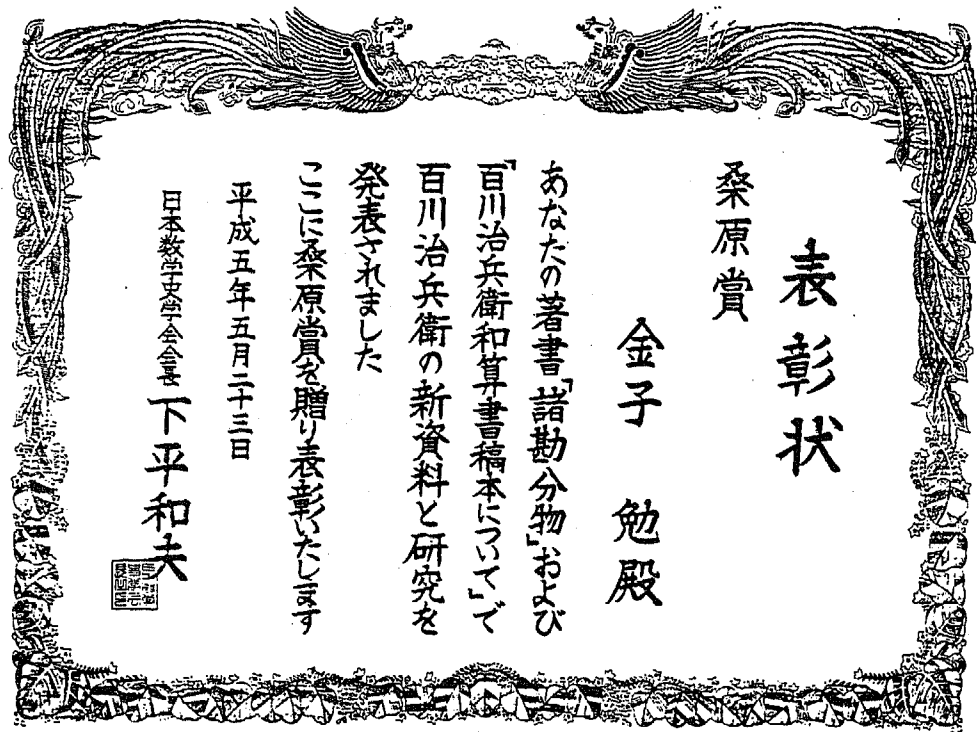 表彰状
桑原賞
金子 勉殿
あなたの著書「諸勘分物」および
「百川治兵衛和算書稿本について」で
百川治兵衛の新資料と研究を
発表されました
ここに桑原賞を贈り表彰いたします
平成五年五月二十三日
日本数学史学会会長 下平和夫